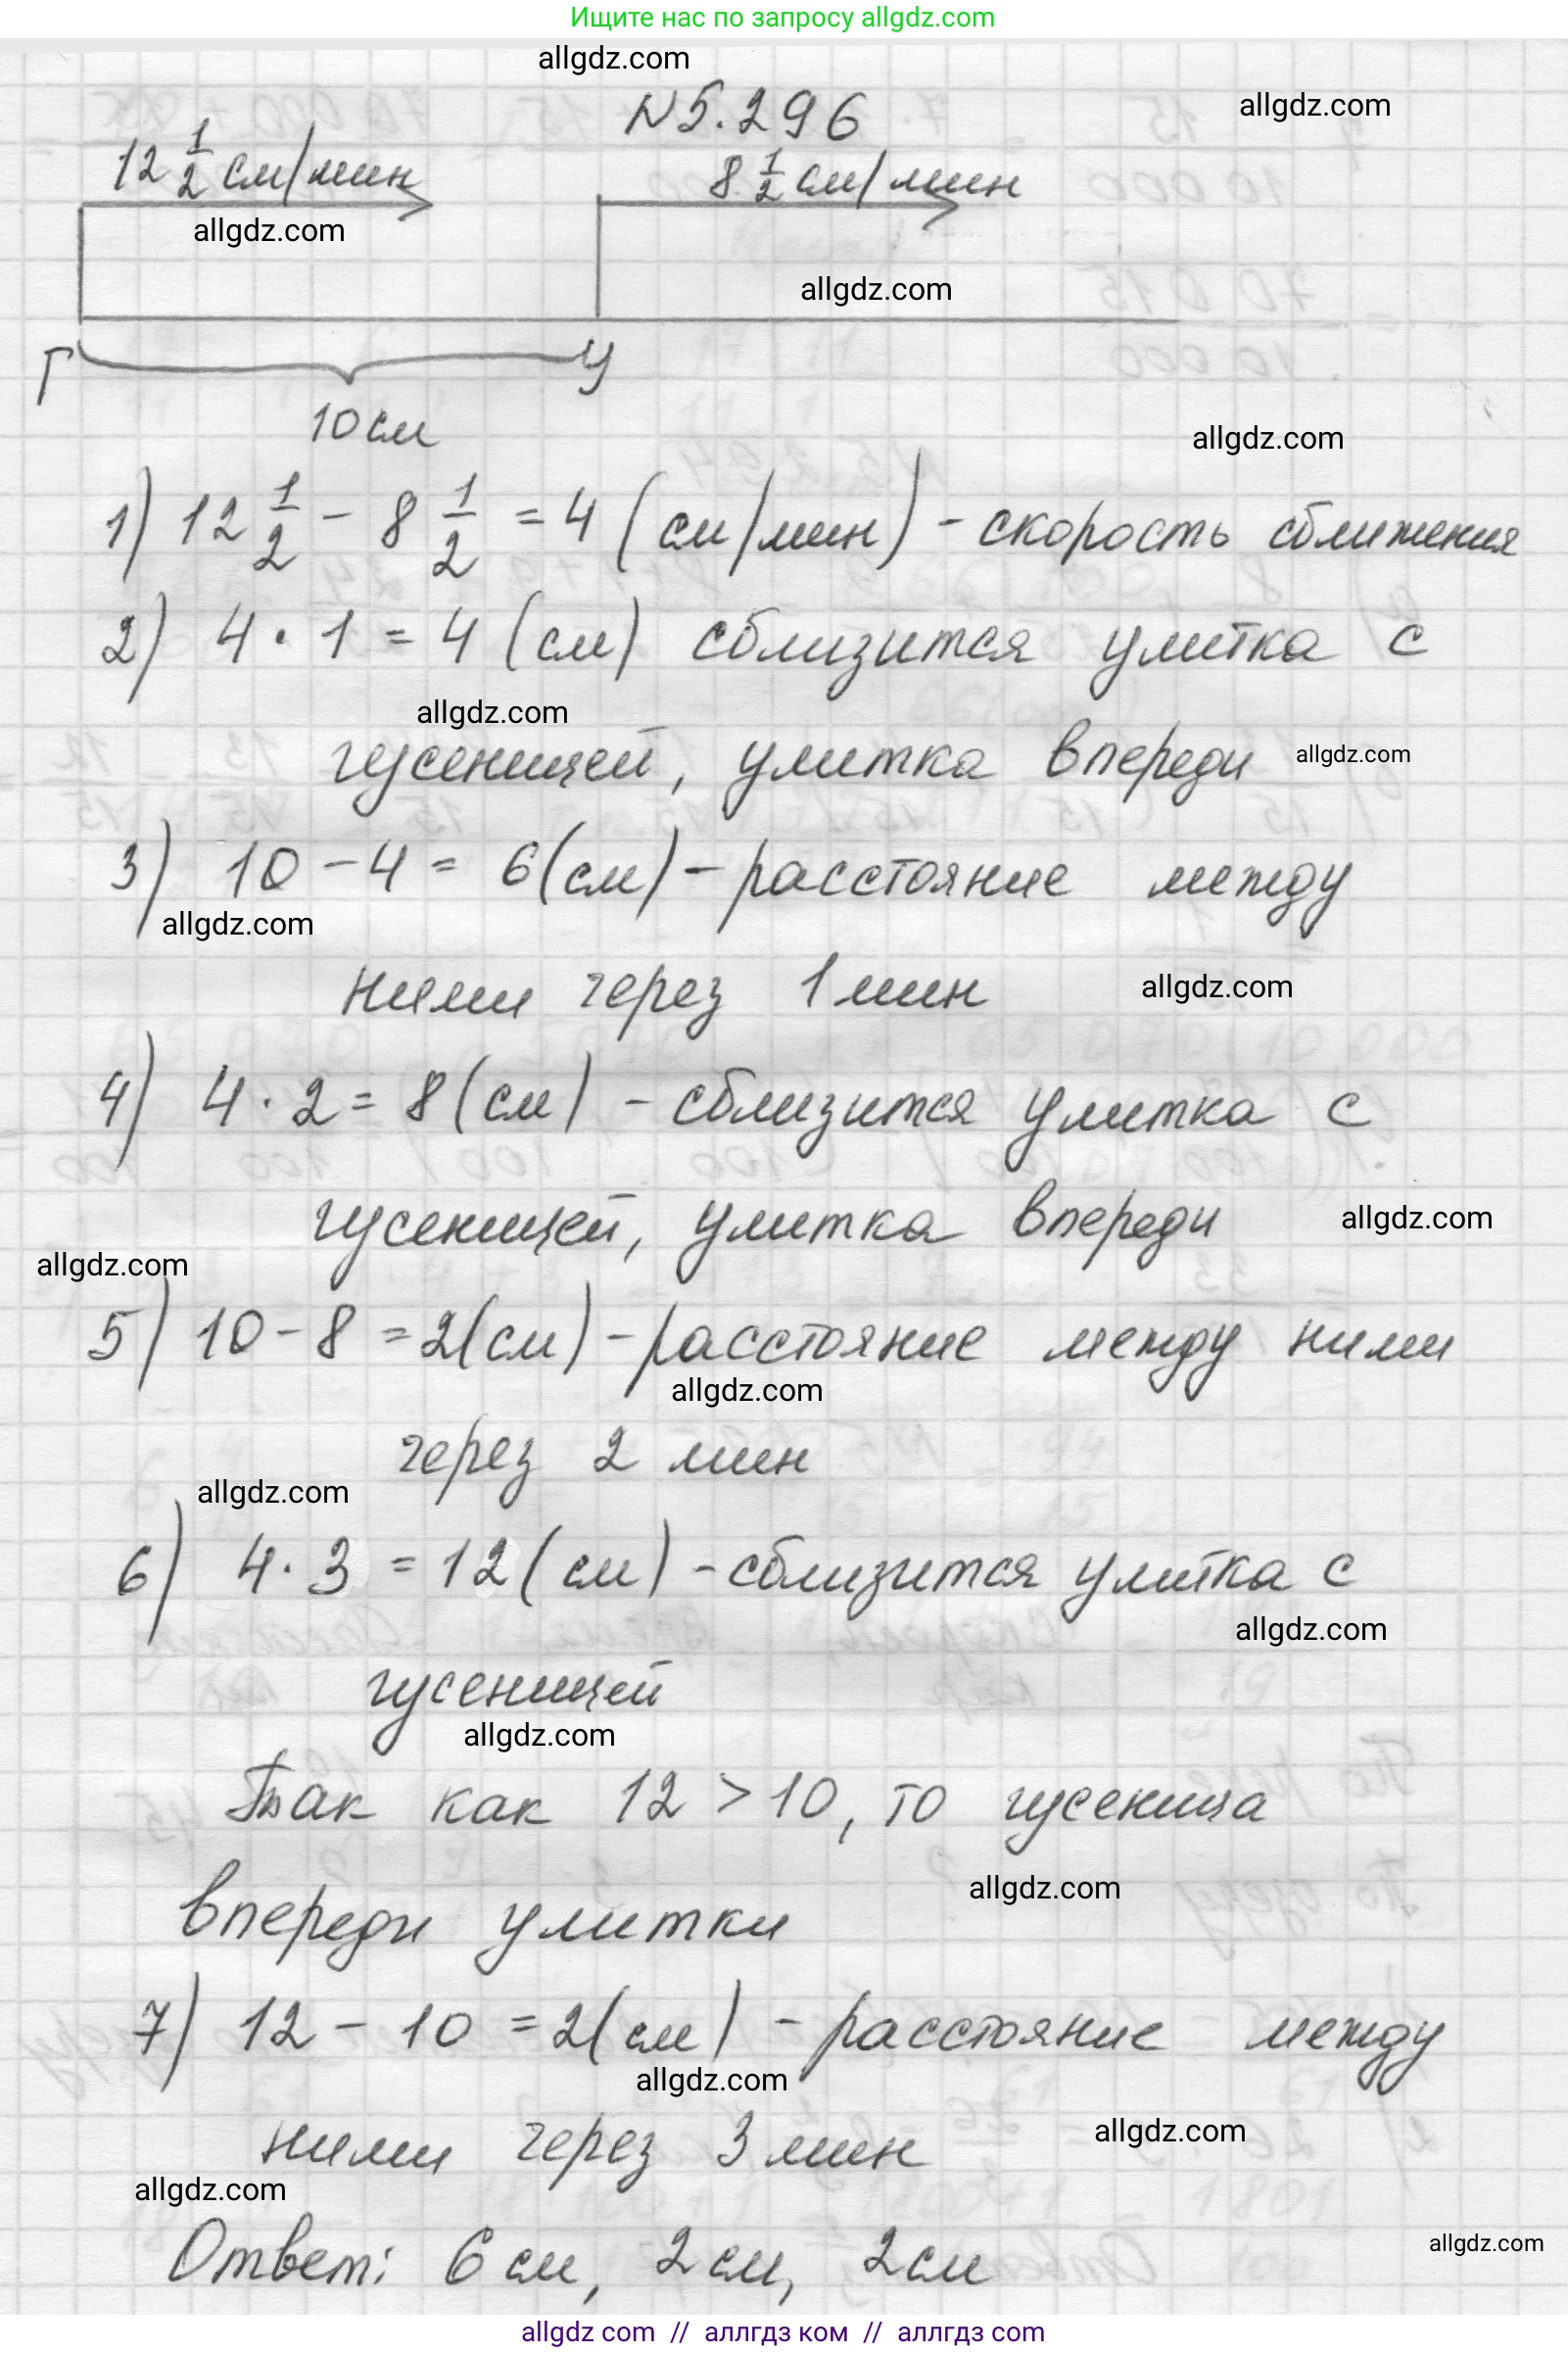 Ищите нас по запросу allgdz.com
allgdz.com
N5.296
allgdz.com
12 1/2 см/мин
8 1/2 см/мин
allgdz.com
allgdz.com
Г
У
10 см
allgdz.com
1) 12 1/2 - 8 1/2 = 4 (см/мин) - скорость сближения
2) 4 · 1 = 4 (см) сблизится улитка с
allgdz.com
гусеницей, улитка впереди
allgdz.com
3) 10 - 4 = 6 (см) - расстояние между
allgdz.com
ними через 1 мин
allgdz.com
4) 4 · 2 = 8 (см) - сблизится улитка с
гусеницей, улитка впереди
allgdz.com
allgdz.com
5) 10 - 8 = 2 (см) - расстояние между ними
allgdz.com
через 2 мин
allgdz.com
6) 4 · 3 = 12 (см) - сблизится улитка с
allgdz.com
гусеницей
allgdz.com
Так как 12 > 10, то гусеница
allgdz.com
впереди улитки
7) 12 - 10 = 2 (см) - расстояние между
allgdz.com
ними через 3 мин
allgdz.com
allgdz.com
Ответ: 6 см, 2 см, 2 см
allgdz.com
allgdz com // аллгдз ком // аллгдз com